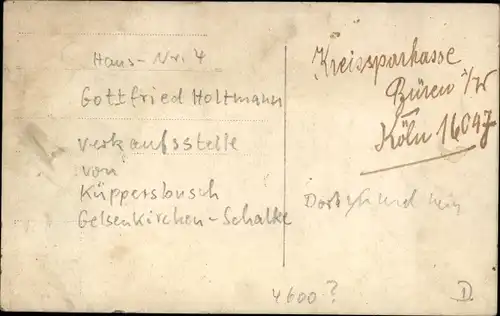 Haus-Nr. 4
Gottfried Holtmann
Verkaufsstelle
von
Küppersbusch
Gelsenkirchen-Schalke
Kreissparkasse
Büren i/W
Köln 16047
Dortmund nein
4600?
D